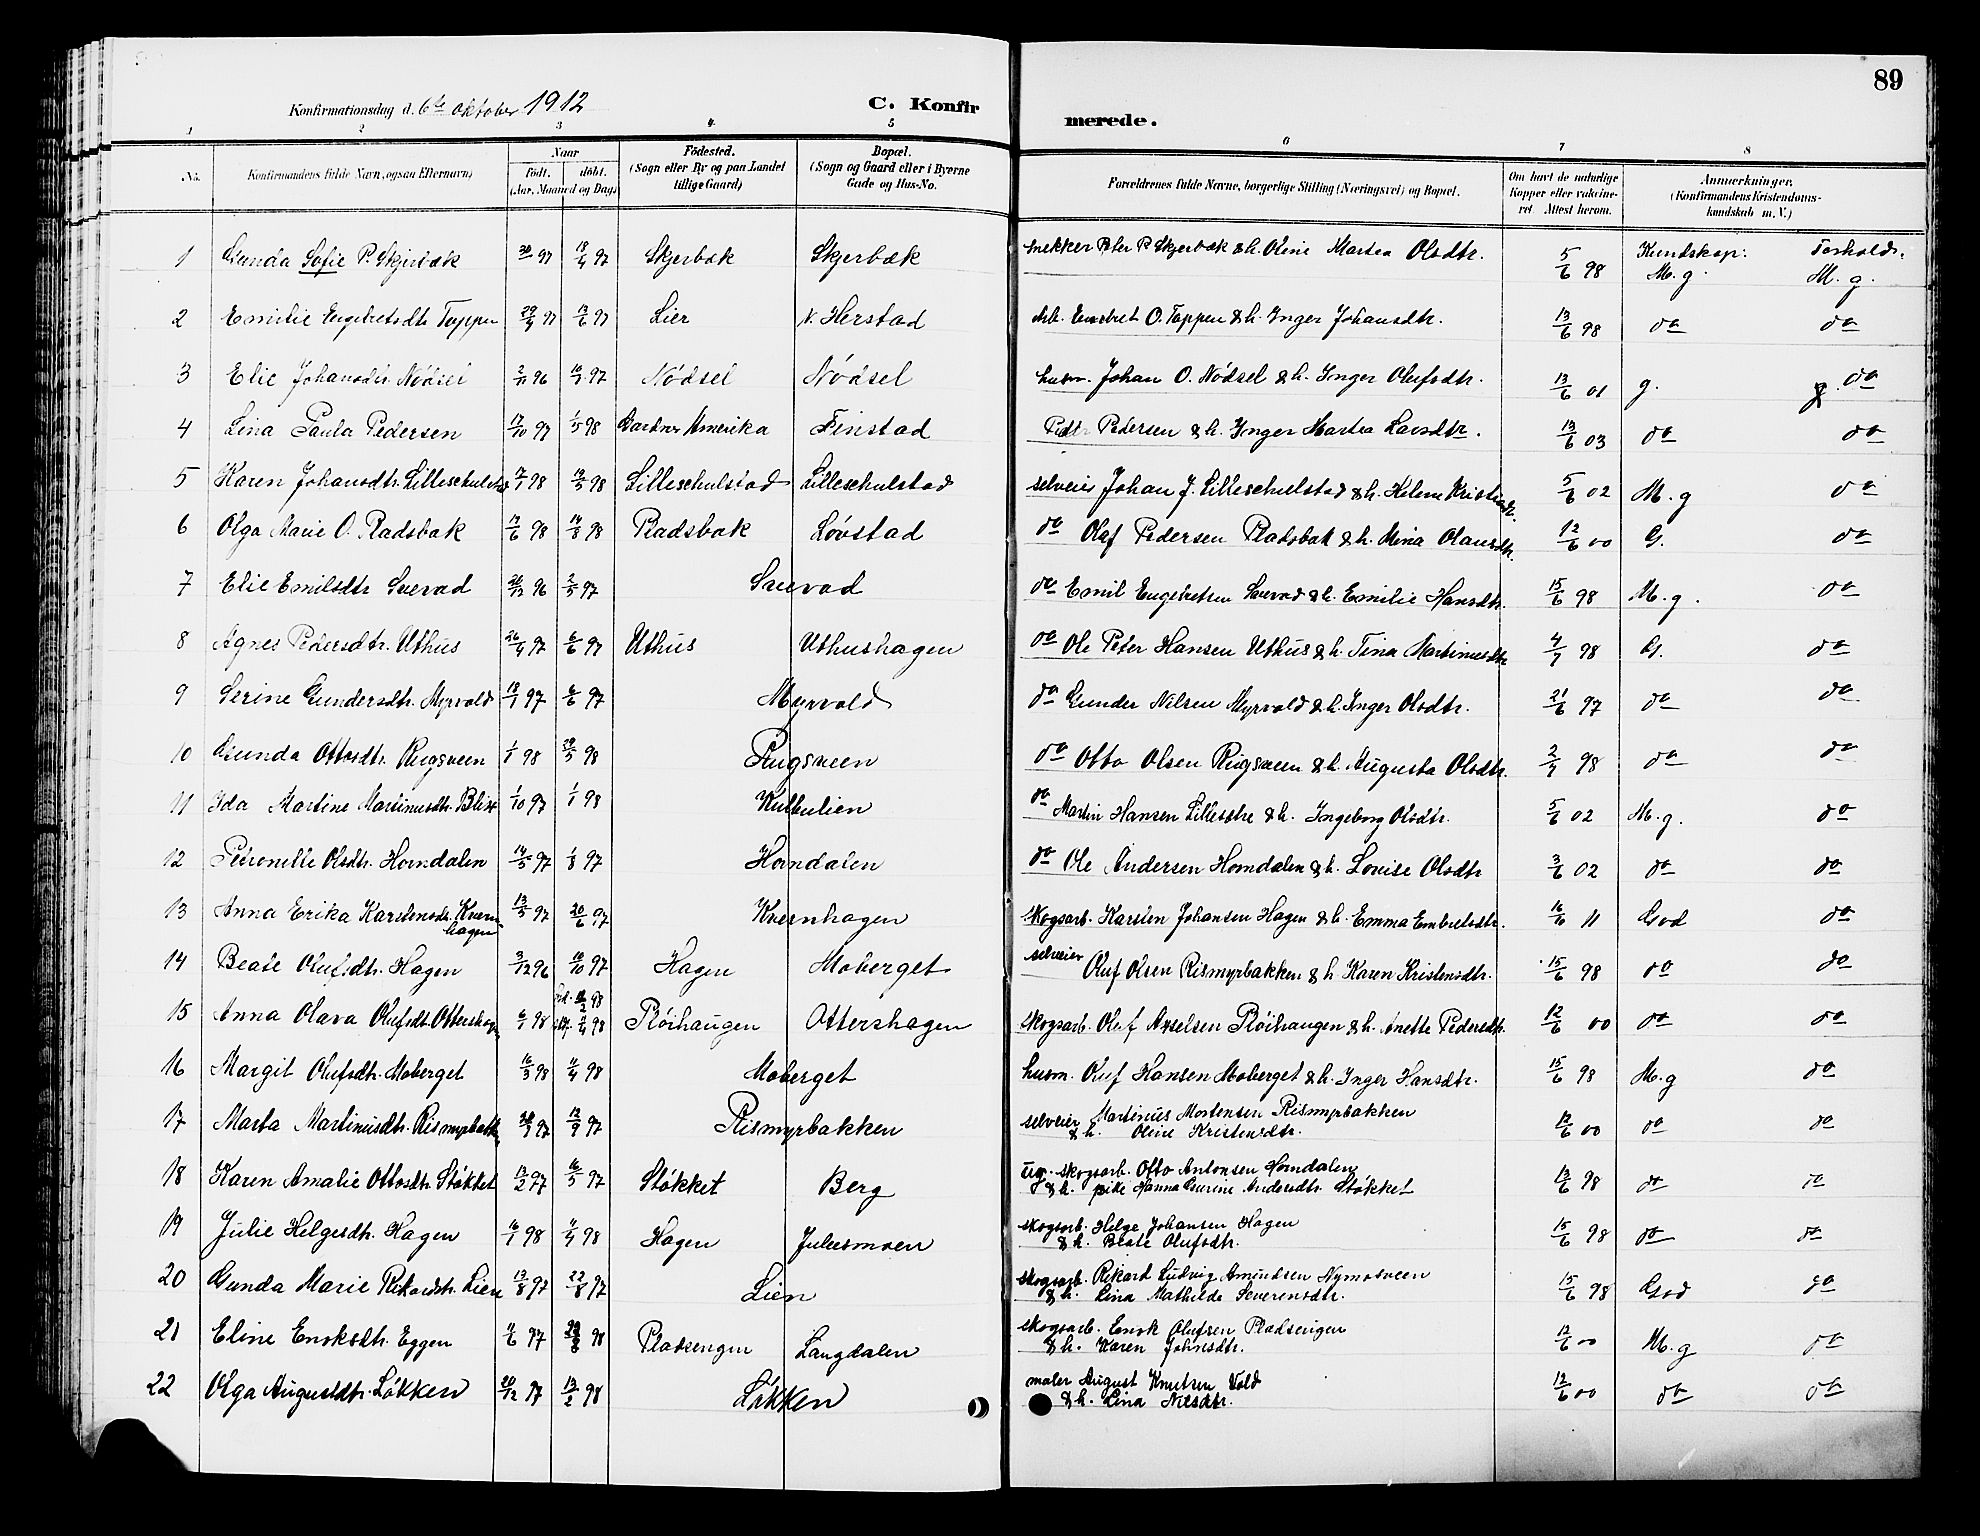 89
Konfirmationsdag d. 6te oktober 1912 C. Konfirmerede.
1 2 3 4 5 6 7 8
No. Konfirmandens fulde Navn, ogsaa Efternavn) Naar Födt. döbt. (Aar, Maaned og Dag) Födested. (Sogn eller By og paa Landet tillige Gaard) Bopæl. (Sogn og Gaard eller i Byerne Gade og Hus-No. Forældrenes fulde Navne, borgerlige Stilling (Næringsvei) og Bopæl. Om havt de naturlige Kopper eller vaccineret. Attest herom. Anmærkninger. (Konfirmandens Kristendomskundskab m. V.)
Kundskap: Forhold:
1 Gunda Sofie P. Skjerbæk 97 18/4 97 Skjerbæk Skjerbæk snekker Peter P. Skjerbæk & h. Oline Martea Olsdtr. 5/6 98 M. g. M. g.
2 Emilie Engebretsdtr. Toppen 29/4 97 13/6 97 Lier N. Herstad Embret O. Toppen & h. Inger Johansdtr. 13/6 98 do do
3 Elie Johansdtr. Nödsel 2/11 96 97 Nödsel Nödsel husm. Johan O. Nödsel & h. Inger Olufsdtr. 13/6 01 g. do
4 Lina Paula Pedersen 17/10 97 1/5 98 Amerika Finstad Peder Pedersen & h. Inger Martea Larsdtr. 13/6 03 do do
5 Karen Johansdtr. Lilleschulstad 17/1 98 98 Lilleschulstad Lilleschulstad selveier Johan J. Lilleschulstad & h. Helene 5/6 02 M. g do
6 Olga Marie O. Pladsbak 98 14/8 98 Pladsbak Lövstad do Olaf Pedersen Pladsbak & h. Mina Olausdtr. 12/6 00 G. do
7 Elie Emilsdtr. Snevad 96 2/5 97 Snevad do Emil Engebretsen Snevad & h. Emilie Hansdtr. 15/6 98 M. g. do
8 Agnes Pedersdtr. Uthus 26/4 97 6/6 97 Uthus Uthushagen do Ole Peter Hansen Uthus & h. Tina Martinusdtr. 4/7 98 G. do
9 Serine Gundersdtr. Myrvold 97 6/6 97 Myrvold do Gunder Nilsen Myrvold & h. Inger Olsdtr. 21/6 97 do do
10 Gunda Ottosdtr. Rugsveen 98 29/5 98 Rugsveen do Otto Olsen Rugsveen & h. Augusta Olsdtr. 2/7 98 do do
11 Ida Martine Martinusdtr. 1/10 97 1/1 98 Kulbulien do Martin Hansen & h. Ingeborg Olsdtr. 5/6 02 M. g. do
12 Petronelle Olsdtr. Horndalen 14/5 97 1/8 97 Horndalen do Ole Andersen Horndalen & h. Lovise Olsdtr 3/6 02 do do
13 Anna Erika Karstensdtr. Kvernhagen 13/5 97 20/6 97 Kvernhagen skogsarb. Karsten Johansen Hagen & h. Emma Embretsdtr. 16/10 11 God do
14 Beate Olufsdtr. Hagen 3/12 96 10/10 97 Hagen Moberget selveier Oluf Olsen Rismyrbakken & h Karen Kristensdtr. 15/6 98 do do
15 Anna Olava Olufsdtr. Ottershagen 6/1 98 98 98 Röihaugen Ottershagen skogsarb. Oluf Axelsen Röihaugen & h. Anette Pedersdtr. 12/6 00 do do
16 Margit Olufsdtr. Moberget 16/3 98 11/4 98 Moberget husm. Oluf Hansen Moberget & h. Inger Hansdtr. 15/6 98 M. g do
17 Marta Martinusdtr. Rismyrbakken 97 97 Rismyrbakken selveier Martinus Mortensen Rismyrbakken
& h. Oline Kristensdtr. 12/6 00 do do
18 Karen Amalie Ottosdtr. Stökket 13/2 97 16/5 97 Stökket Berg ug. skogsarb. Otto Antonsen Horndalen
& h. pike Hanna Andersdtr. Stökket 13/6 98 do do
19 Julie Helgesdtr. Hagen 98 11/4 98 Hagen Juliesmoen skogsarb. Helge Johansen Hagen
& h. Beate Olufsdtr. 15/6 98 do do
20 Gunda Marie Rikardsdtr. Lien 13/8 97 22/8 97 Lien skogsarb. Rikard Ludvig Amundsen Nymosveen
& h. Lina Mathilde Severensdtr. 15/6 98 God do
21 Eline Enoksdtr. Eggen 11/6 97 98 Pladsengen Langdalen skogsarb. Enok Olufsen Pladsengen
& h. Karen Johnsdtr. 12/6 00 M. g do
22 Olga Augustsdtr. Lökken 97 13/2 98 Lökken maler August Knutsen Vold
& h. Lina Nilsdtr. 12/6 00 do do